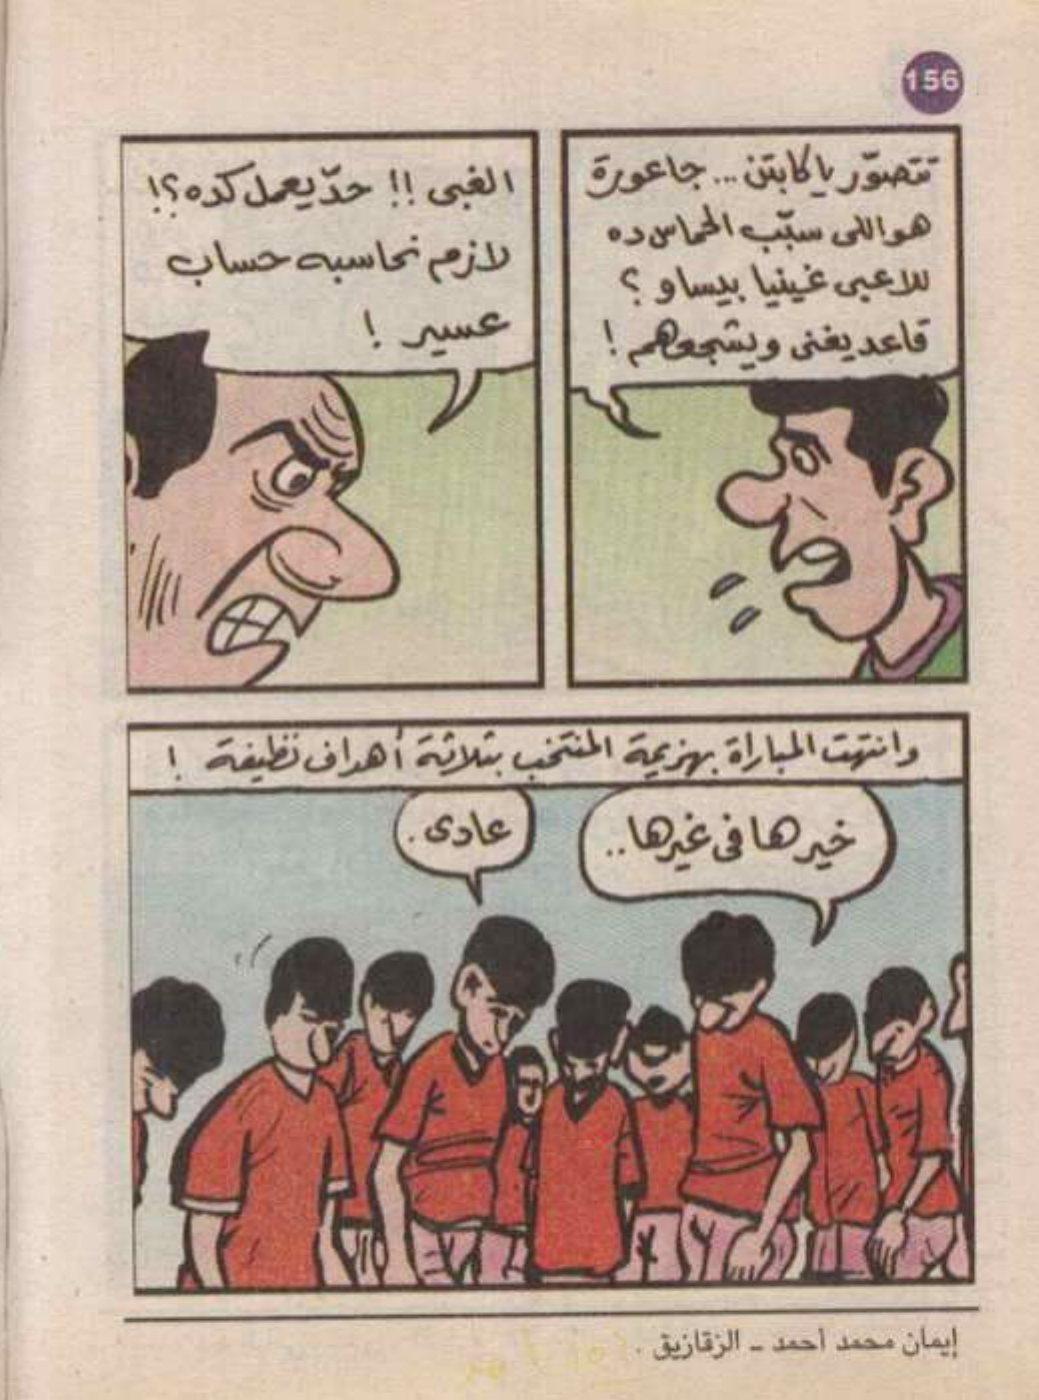 156
تتصوّر يا كابتن... جاعورة
هو اللى سبّب الحماس ده
للاعبى غينيا بيساو ؟
قاعد يغنى ويشجعهم !
الغبى !! حدّ يعمل كده ؟!
لازم نحاسبه حساب
عسير !
وانتهت المباراة بهزيمة المنتخب بثلاثة أهداف نظيفة !
خيرها فى غيرها..
عادى.
إيمان محمد أحمد - الزقازيق .